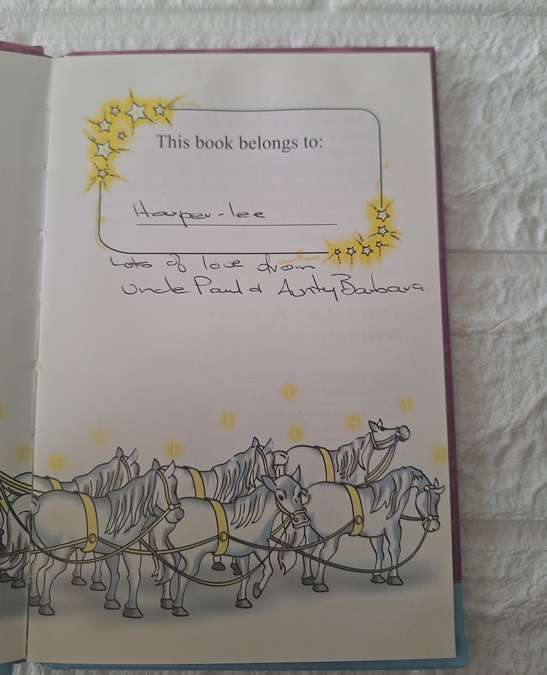 This book belongs to:
Harper-lee
Lots of love from
Uncle Paul & Aunty Barbara.